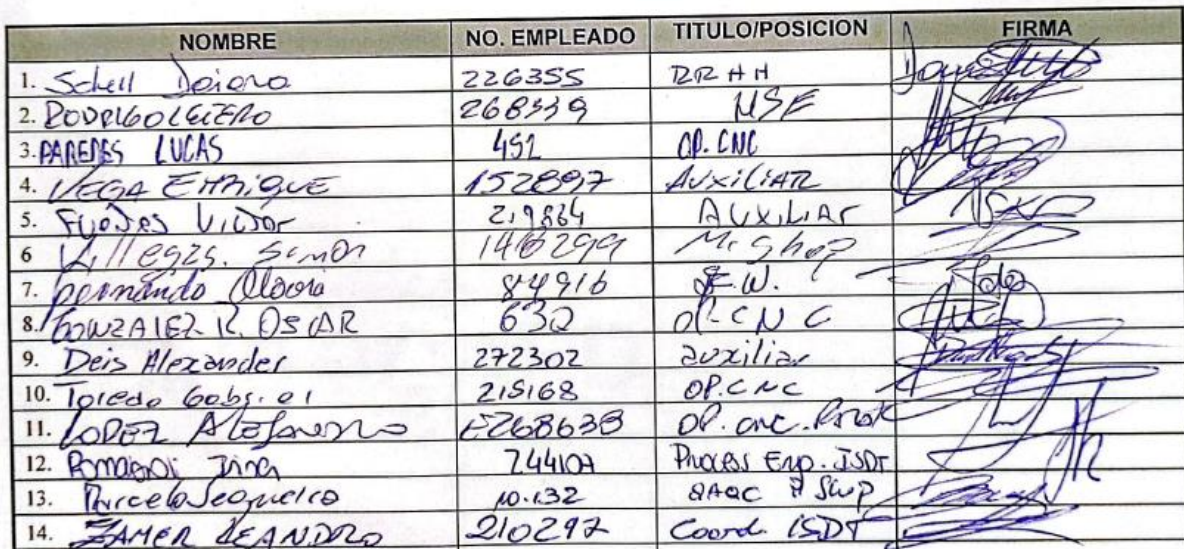 NOMBRE NO. EMPLEADO TITULO/POSICION FIRMA
1. Schell Daiana 226355 RRHH
2. 268339 HSE
3. PAREDES LUCAS 451 OP. CNC
4. VEGA ENRIQUE 152897 AUXILIAR
5. Victor 219864 AUXILIAR
6 Villegas. Simon 146299
7. Fernando 84916
8. GONZALEZ R. OSCAR 632 OP-CNC
9. Deis Alexander 272302 auxiliar
10. Toledo Gabriel 215168 OP.CNC
11. LOPEZ Alejandro E268638 OP. CNC.
12. Irina 244107 Process Eng. ISDT
13. Marcela Sequeira 10.132 QAQC
14. ZAMER LEANDRO 210297 Coord. ISDT